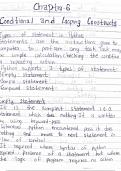 Chapter-6
Conditional and Looping Constructs
Types of statement in Python
Statements are the instructions given to
computer to perform any task. Task may
be simple calculation, checking the condition
or repeating action.
Python supports 3 types of statement:
Empty statement
Simple statement
Compound statement
Empty Statement
It is the simplest statement i.e. a
statement which does nothing. It is written
by using keyword - pass
Whenever python encountered pass it does
nothing and moves to next statement in
flow of control
required where syntax of python
presence of a statement but where
the logic of program requires no action